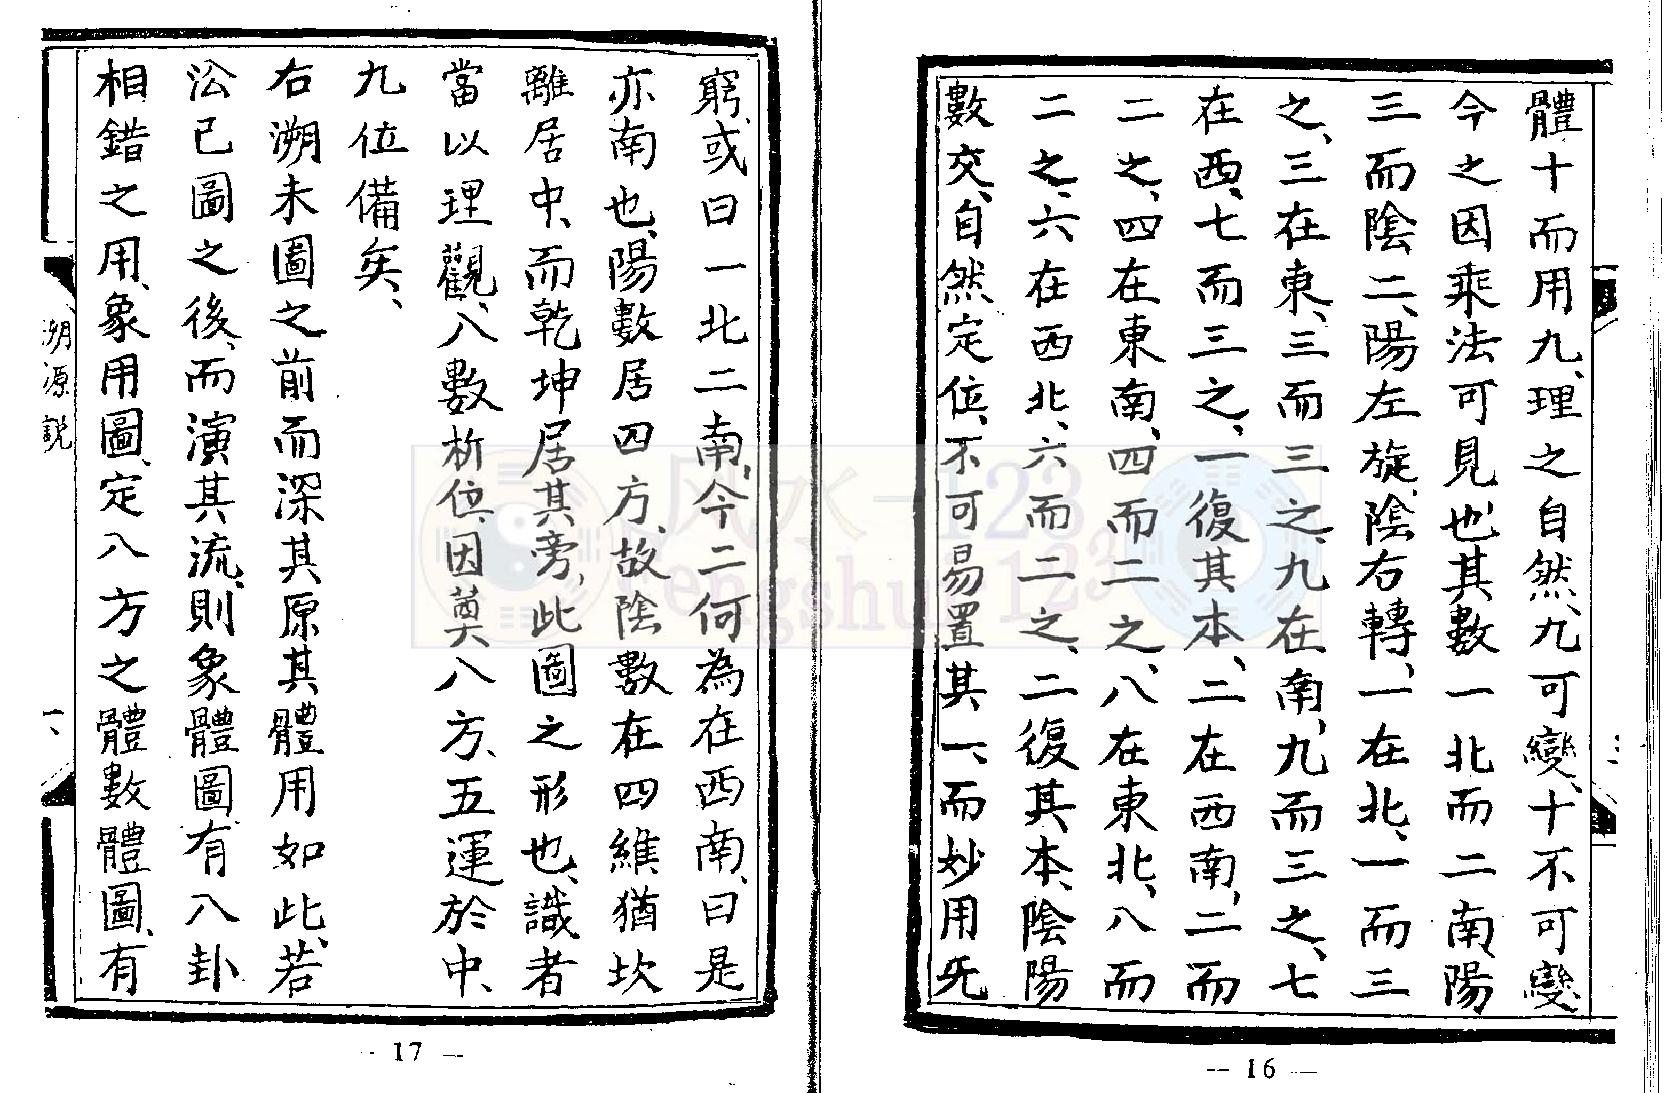 體十而用九、理之自然、九可變、十不可變、
今之因乘法可見也、其數一北而二南、陽
三而陰二、陽左旋、陰右轉、一在北、一而三
之、三在東、三而三之、九在南、九而三之、七
在西、七而三之、一復其本、二在西南、二而
二之、四在東南、四而二之、八在東北、八而
二之、六在西北、六而二之、二復其本、陰陽
數交、自然定位、不可易置其一、而妙用旡
-- 16 --
窮、或曰一北二南、今二何為在西南、曰是
亦南也、陽數居四方、故陰數在四維猶坎
離居中、而乾坤居其旁、此圖之形也、識者
當以理觀、八數析位、因奠八方、五運於中、
九位備矣、
右溯未圖之前而深其原其體用如此、若
㳂已圖之後、而演其流、則象體圖有八卦
相錯之用、象用圖、定八方之體數體圖、有
溯源說
一、
-- 17 --
风水-123
fengshui-123